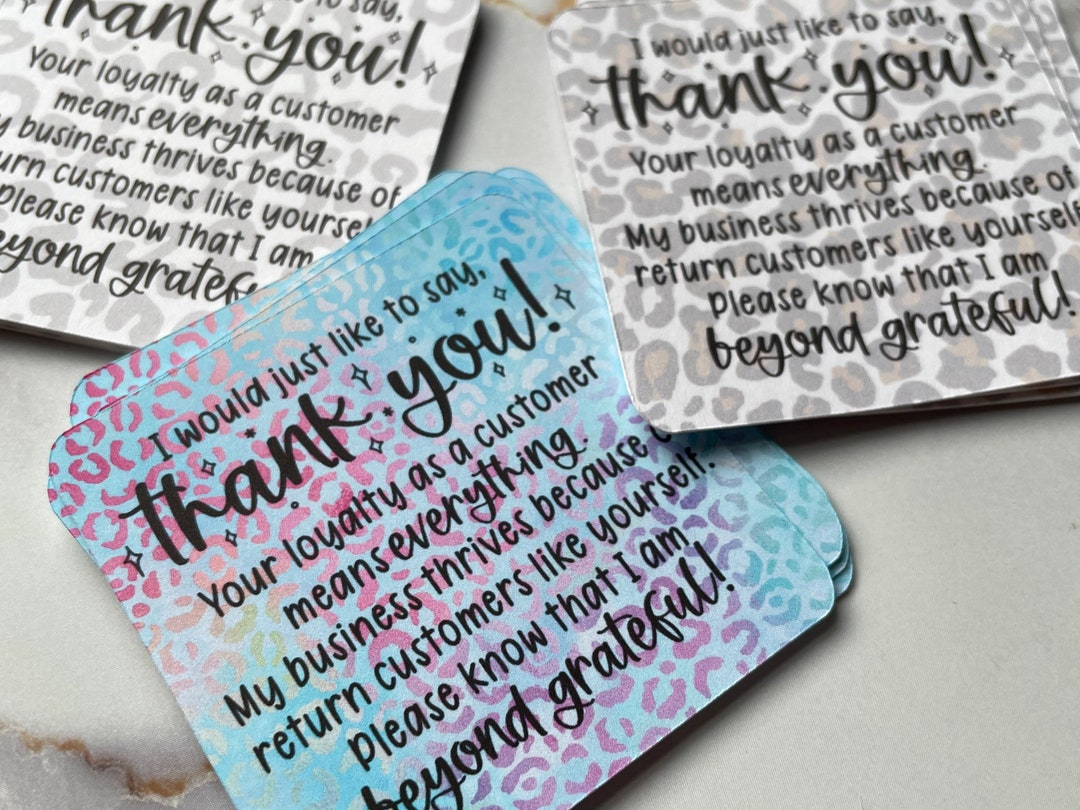 to say,
thank you!
Your loyalty as a customer
means everything.
business thrives because of
return customers like yourself
Please know that I am
beyond grateful
I would just like to say,
thank you!
Your loyalty as a customer
means everything.
My business thrives because of
return customers like yourself
please know that I am
beyond grateful!
I would just like to say,
thank you!
Your loyalty as a customer
means everything.
My business thrives because
return customers like yourself.
please know that I am
beyond grateful!